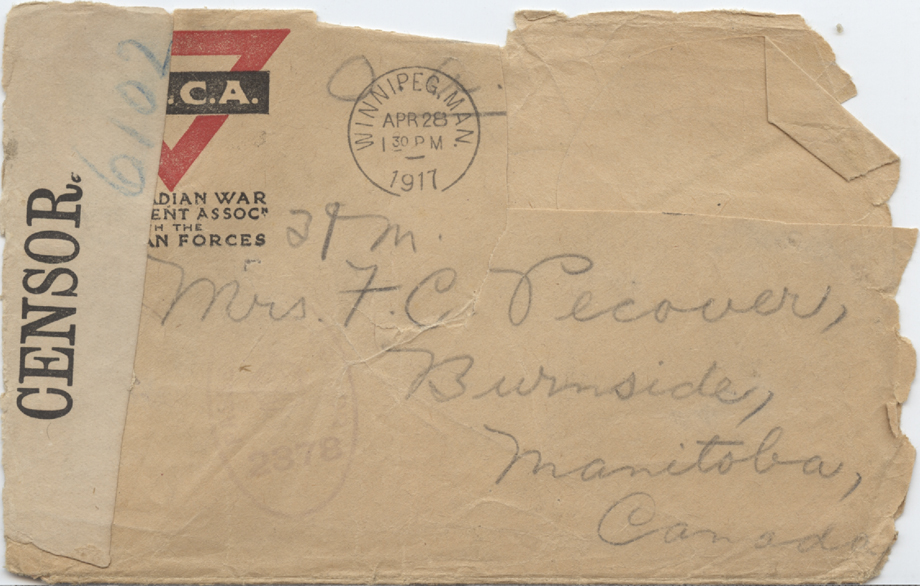 6102
CENSOR.
.C.A.
WINNIPEG, MAN.
APR 28
1 30 PM
1917
ADIAN WAR
ENT ASSOCN
H THE
AN FORCES
Mrs. F. C. Pecover,
Burnside,
Manitoba,
Canada
2378